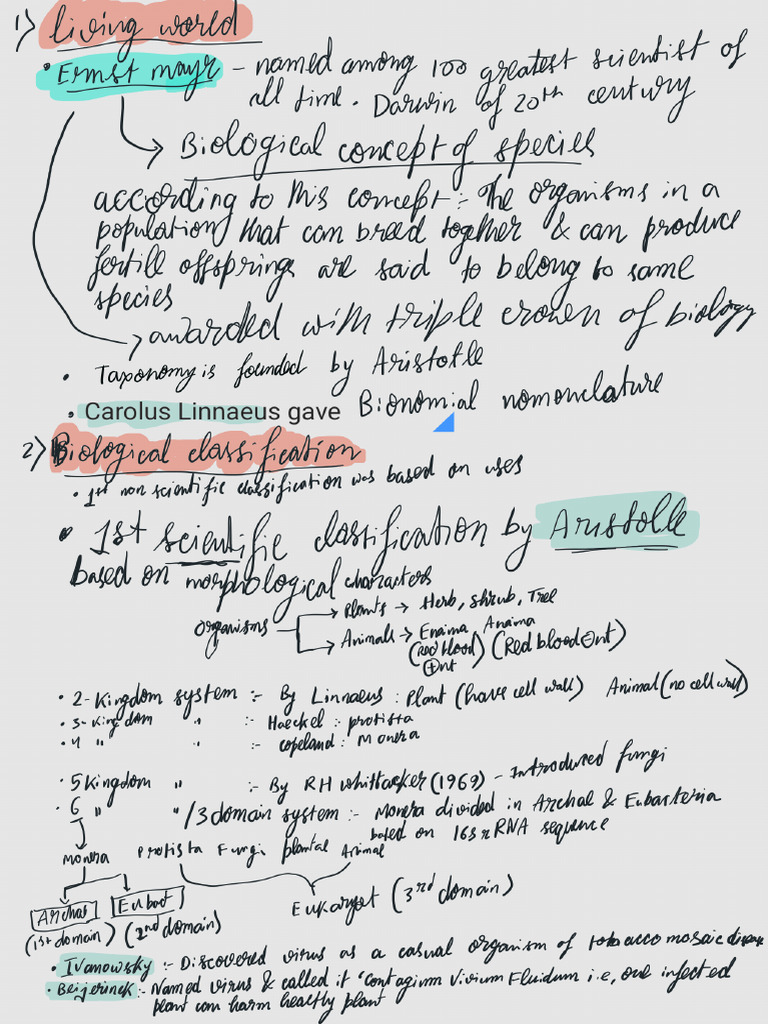 1) living world
• Ernst mayr – named among 100 greatest scientist of
all time. Darwin of 20th century
Biological concept of species
according to this concept :- The organisms in a
population that can breed together & can produce
fertill offsprings are said to belong to same
species
awarded with triple crown of biology
• Taxonomy is founded by Aristotle
• Carolus Linnaeus gave Bionomial nomonclature
2) Biological classification
• 1st non scientific classification was based on uses
• 1st scientific classification by Aristotle
based on morphological characters
Organisms → Plants → Herb, Shrub, Tree
→ Animals → Enaima Anaima
(red blood) (Red blood ⊖nt)
⊕nt
• 2-Kingdom system :- By Linnaeus : Plant (have cell wall) Animal (no cell wall)
• 3-Kingdom " :- Haeckel : protista
• 4 " " :- copeland : Monera
• 5 Kingdom " :- By RH Whittaeker (1969) - Introduced fungi
• 6 " " / 3 domain system :- Monera divided in Archal & Eubacteria
based on 16s rRNA sequence
Monera Protista Fungi plantae Animal
Archas Eubact Eukaryot (3rd domain)
(1st domain) (2nd domain)
• Ivanowsky :- Discovered virus as a casual organism of tobacco mosaic disease
• Beijerinck :- Named virus & called it "Contagium Vivium Fluidum i.e, one infected
plant can harm healty plant